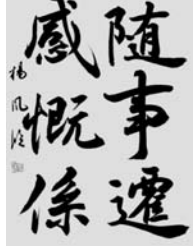 随事遷
感慨係
楊風臨